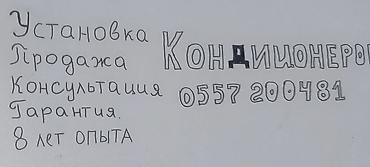 Установка
Продажа
Консультация
Гарантия.
8 лет опыта
Кондиционеро
0557 200481